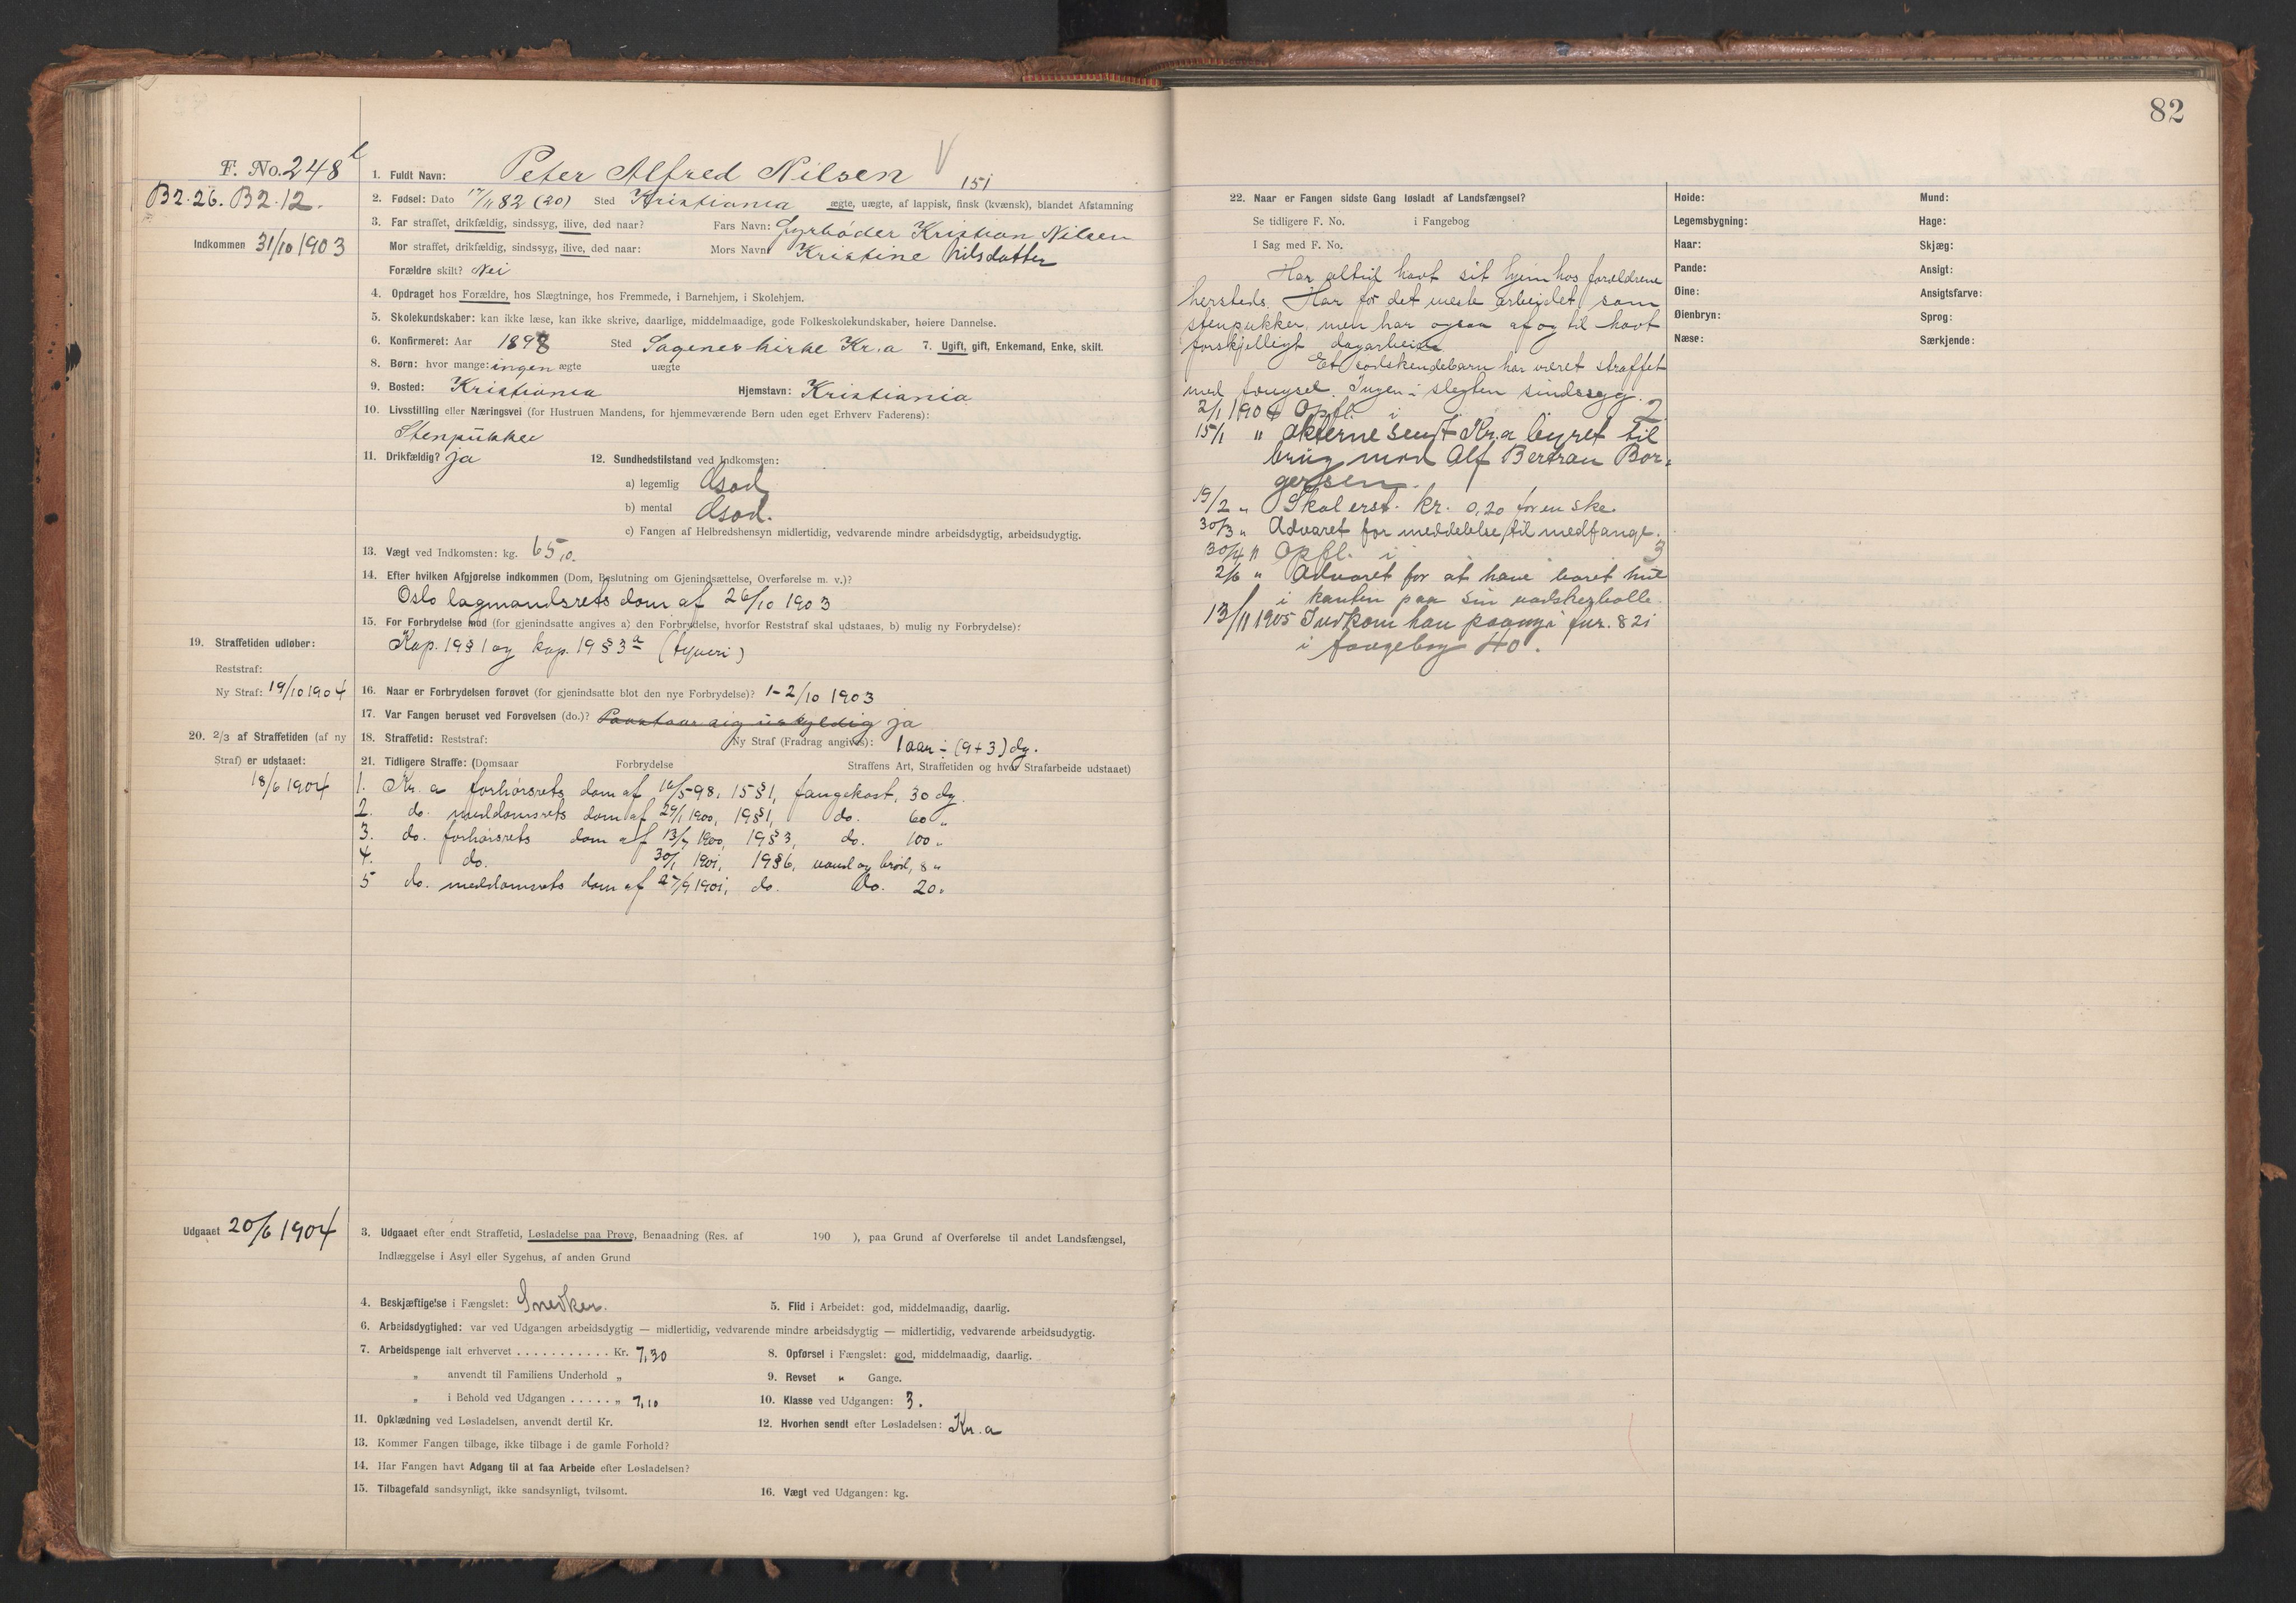 82
F. No. 248 b
B2.26. B2.12.
Indkommen 31/10 1903
1. Fuldt Navn: Peter Alfred Nilsen V 151
2. Fødsel: Dato 17/11 82 (20) Sted Kristiania ægte, uægte, af lappisk, finsk (kvænsk), blandet Afstamning
3. Far straffet, drikfældig, sindssyg, ilive, død naar? Fars Navn: Fyrbøder Kristian Nilsen
Mor straffet, drikfældig, sindssyg, ilive, død naar: Mors Navn Kristine Nilsdatter
Forældre skilt? Nei
4. Opdraget hos Forældre, hos Slægtninge, hos Fremmede, i Barnehjem, i Skolehjem.
5. Skolekundskaber: kan ikke læse, kan ikke skrive, daarlige, middelmaadige, gode Folkeskolekundskaber, høiere Dannelse.
6. Konfirmeret: Aar 1898 Sted Sagenes kirke Kr.a 7. Ugift, gift, Enkemand, Enke, skilt.
8. Børn: hvor mange: ingen ægte uægte
9. Bosted: Kristiania Hjemstavn: Kristiania
10. Livsstilling eller Næringsvei (for Hustruen Mandens, for hjemmeværende Børn uden eget Erhverv Faderens):
Stenpukker
11. Drikfældig? ja 12. Sundhedstilstand ved Indkomsten:
a) legemlig God
b) mental God.
c) Fangen af Helbredshensyn midlertidig, vedvarende mindre arbeidsdygtig, arbeidsudygtig.
13. Vægt ved Indkomsten: kg. 65,0.
14. Efter hvilken Afgjørelse indkommen (Dom, Beslutning om Gjenindsættelse, Overførelse m. v.)?
Oslo lagmandsrets dom af 26/10 1903
15. For Forbrydelse mod (for gjenindsatte angives a) den Forbrydelse, hvorfor Reststraf skal udstaaes, b) mulig ny Forbrydelse):
Kap. 19 § 1 og kap. 19 § 3 a (tyveri)
19. Straffetiden udløber:
Reststraf:
Ny Straf: 19/10 1904
16. Naar er Forbrydelsen forøvet (for gjenindsatte blot den nye Forbrydelse)? 1-2/10 1903
17. Var Fangen beruset ved Forøvelsen (do.)? Paastaar sig uskyldig ja
20. 2/3 af Straffetiden (af ny
Straf) er udstaaet:
18/6 1904
18. Straffetid: Reststraf: Ny Straf (Fradrag angives): 1 aar ÷ (9+3) dg.
21. Tidligere Straffe: (Domsaar Forbrydelse Straffens Art, Straffetiden og hvor Strafarbeide udstaaet)
1. Kr.a forhørsrets dom af 16/5-98, 15 § 1, fangekost, 30 dg.
2. do. meddomsrets dom af 29/1 1900, 19 § 1, do. 60 "
3. do. forhørsrets dom af 13/7 1900, 19 § 3, do. 100 "
4. do. 30/1 1901, 19 § 6, vand og brød, 8 "
5 do. meddomsrets dom af 27/9 1901, do. do. 20 "
Udgaaet 20/6 1904
3. Udgaaet efter endt Straffetid, Løsladelse paa Prøve, Benaadning (Res. af 190 ), paa Grund af Overførelse til andet Landsfængsel,
Indlæggelse i Asyl eller Sygehus, af anden Grund
4. Beskjæftigelse i Fængslet: Snedker.
5. Flid i Arbeidet: god, middelmaadig, daarlig.
6. Arbeidsdygtighed: var ved Udgangen arbeidsdygtig — midlertidig, vedvarende mindre arbeidsdygtig — midlertidig, vedvarende arbeidsudygtig.
7. Arbeidspenge ialt erhvervet . . . . . . . . . . . Kr. 7,30
8. Opførsel i Fængslet: god, middelmaadig, daarlig.
" anvendt til Familiens Underhold "
9. Revset " Gange.
" i Behold ved Udgangen . . . . . " 7,10
10. Klasse ved Udgangen: 3.
11. Opklædning ved Løsladelsen, anvendt dertil Kr.
12. Hvorhen sendt efter Løsladelsen: Kr.a
13. Kommer Fangen tilbage, ikke tilbage i de gamle Forhold?
14. Har Fangen havt Adgang til at faa Arbeide efter Løsladelsen?
15. Tilbagefald sandsynligt, ikke sandsynligt, tvilsomt.
16. Vægt ved Udgangen: kg.
22. Naar er Fangen sidste Gang løsladt af Landsfængsel?
Se tidligere F. No. i Fangebog
I Sag med F. No.
Har altid havt sit hjem hos forældrene
hersteds. Har for det meste arbeidet som
stenpukker, men har ogsaa af og til havt
forskjelligt dagarbeide.
Et sødskendebarn har været straffet
med fængsel. Ingen i slegten sindssyg.
2/1 1904 Opfl. i 2
15/1 " Akterne sendt Kr.a byret til
brug mod Alf Bertran Bor-
gersen.
19/2 " Skal erst. kr. 0,20 for en ske.
30/3 " Advaret for meddelelse til medfange.
30/4 " Opfl. i 3
2/6 " Advaret for at have boret hul
i kanten paa sin vadskebolle.
13/11 1905 Indkom han paany i fnr. 82i
i fangebog 40.
Høide:
Legemsbygning:
Haar:
Pande:
Øine:
Øienbryn:
Næse:
Mund:
Hage:
Skjæg:
Ansigt:
Ansigtsfarve:
Sprog:
Særkjende: